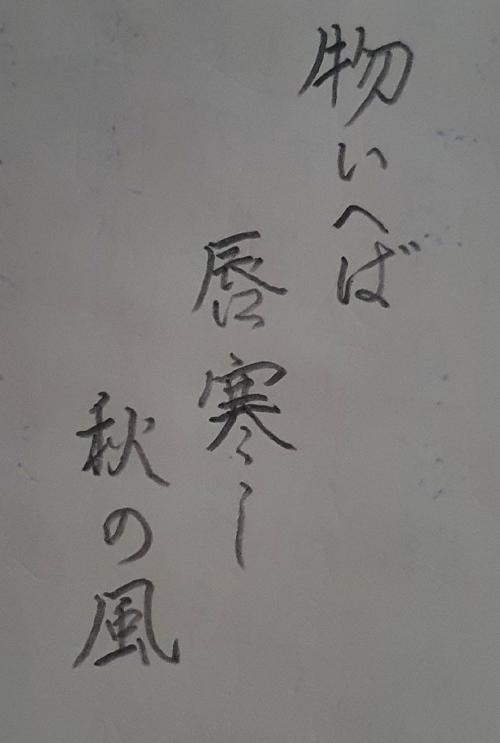 物いへば
唇寒し
秋の風